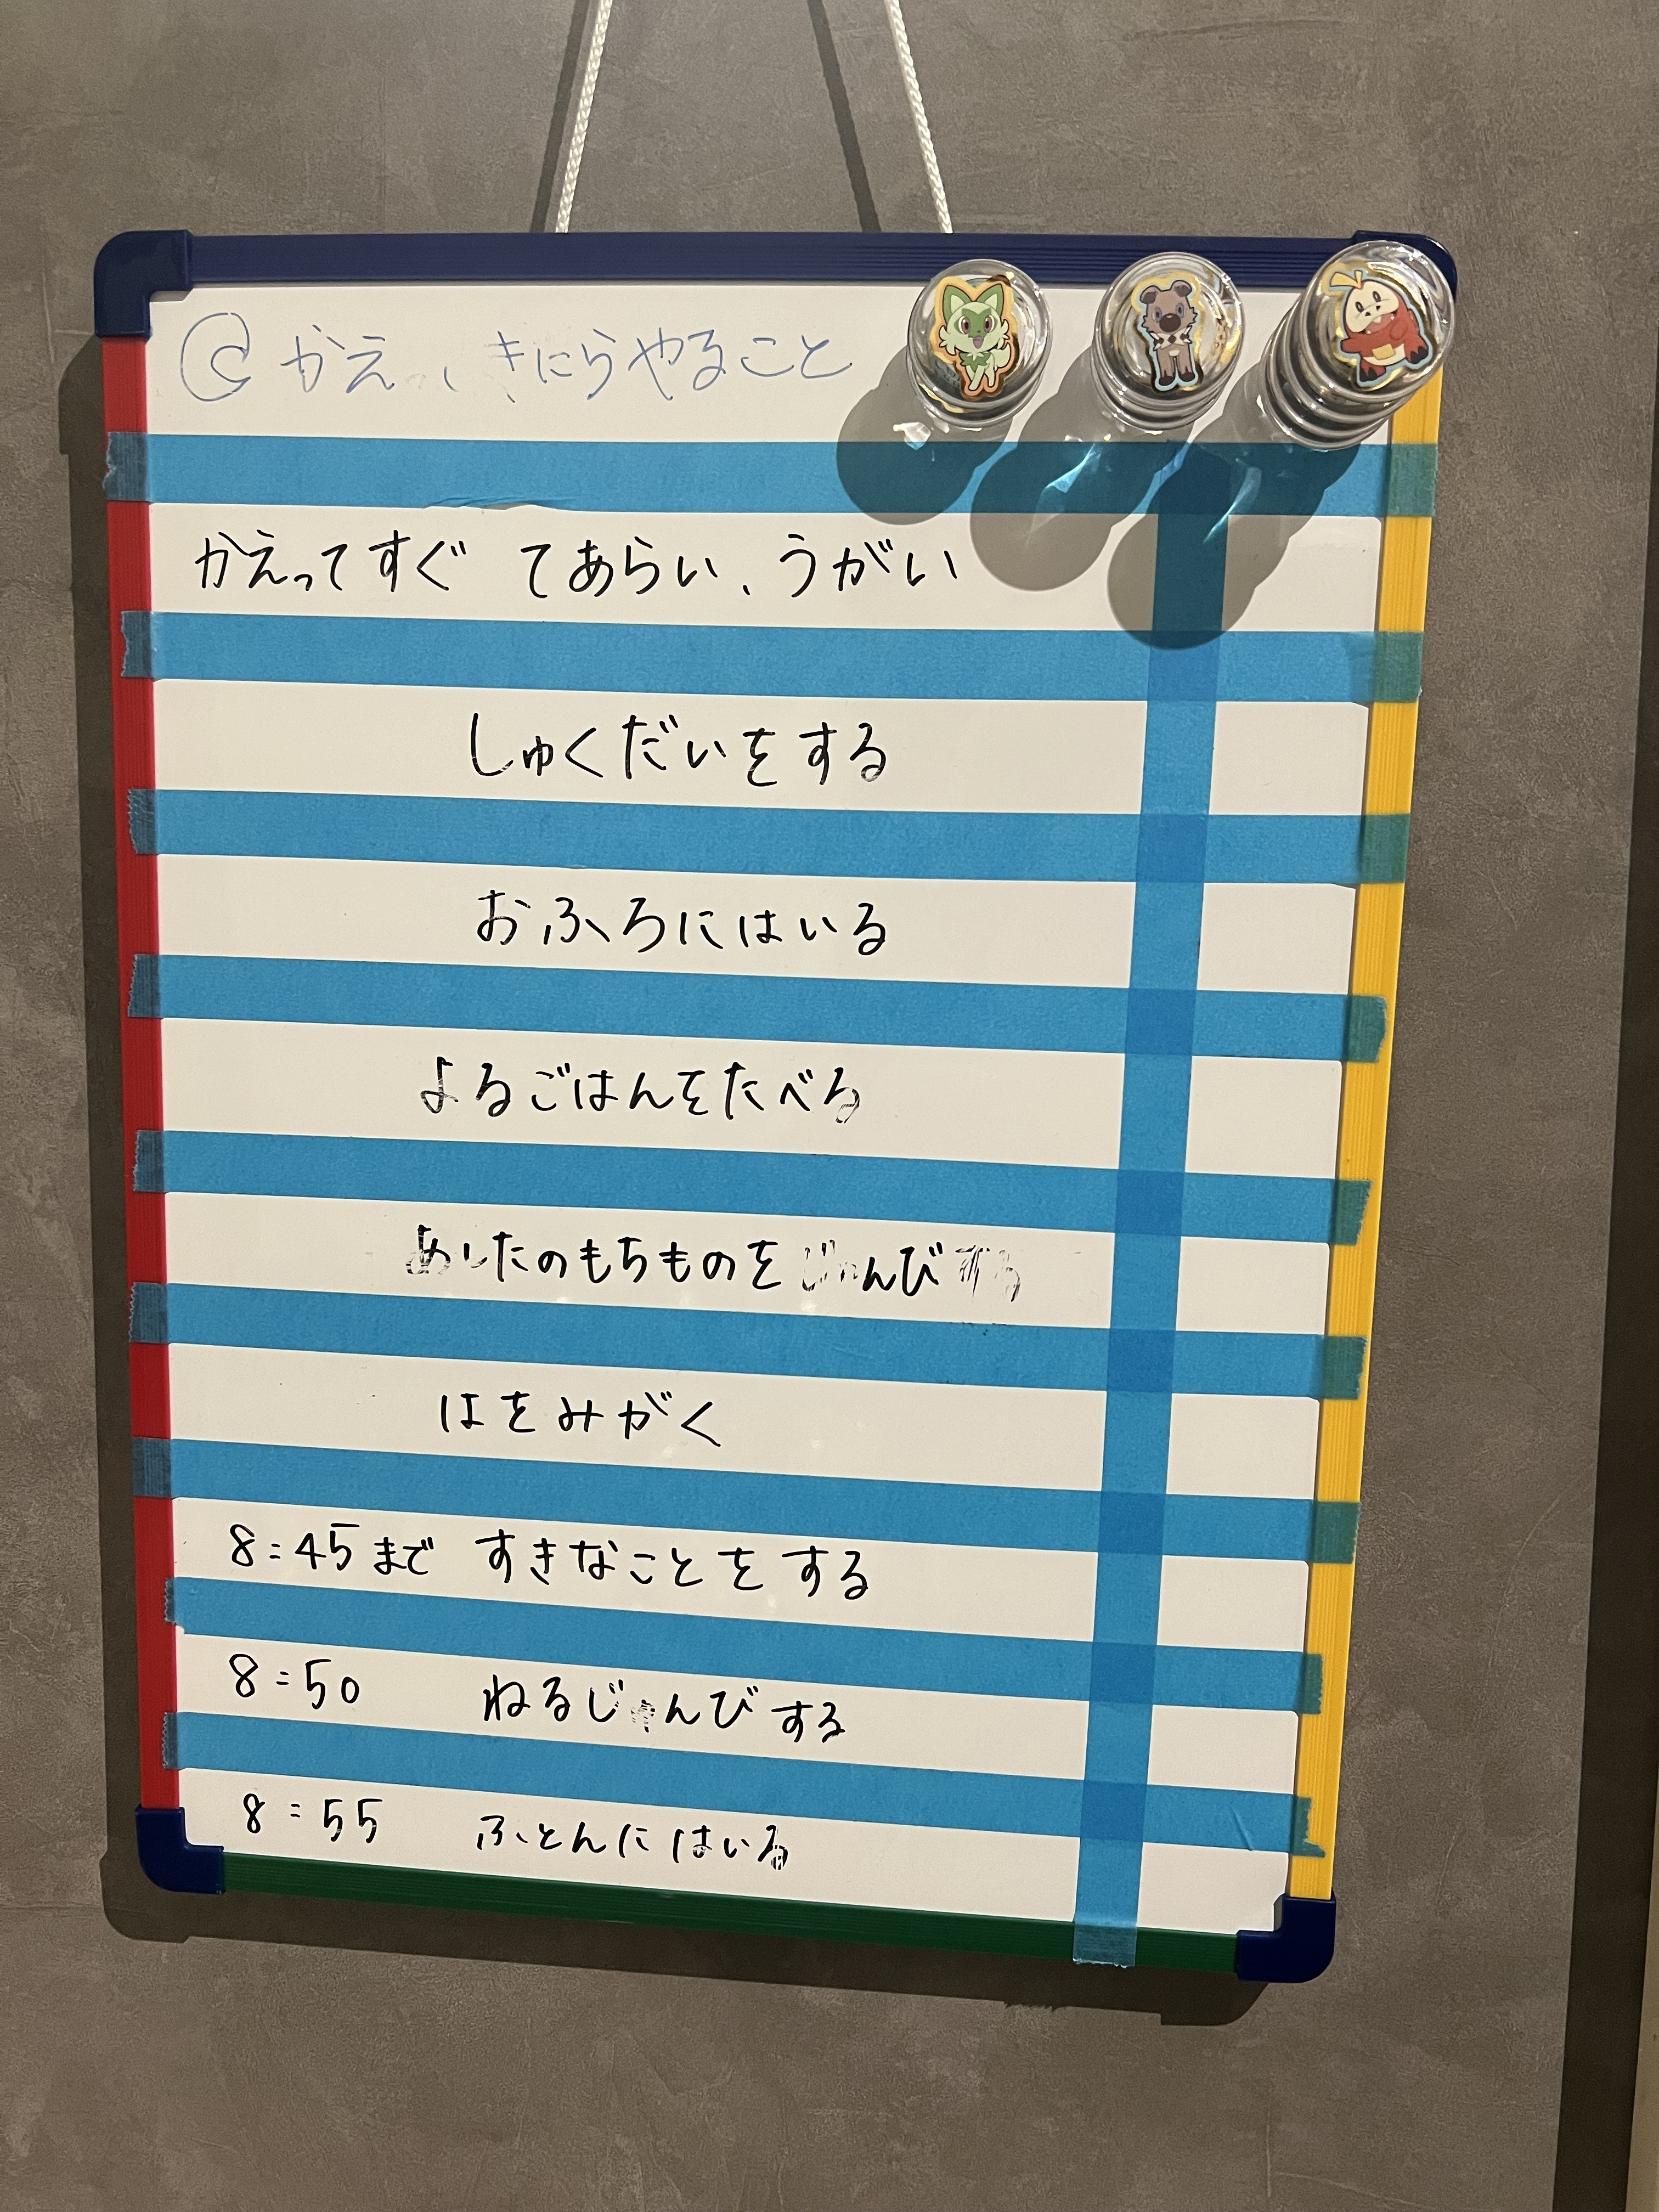 かえ きにらやること
かえってすぐ てあらい、うがい
しゅくだいをする
おふろにはいる
よるごはんをたべる
あしたのもちものをじゅんびする
はをみがく
8:45まで すきなことをする
8:50 ねるじゅんびする
8:55 ふとんにはいる